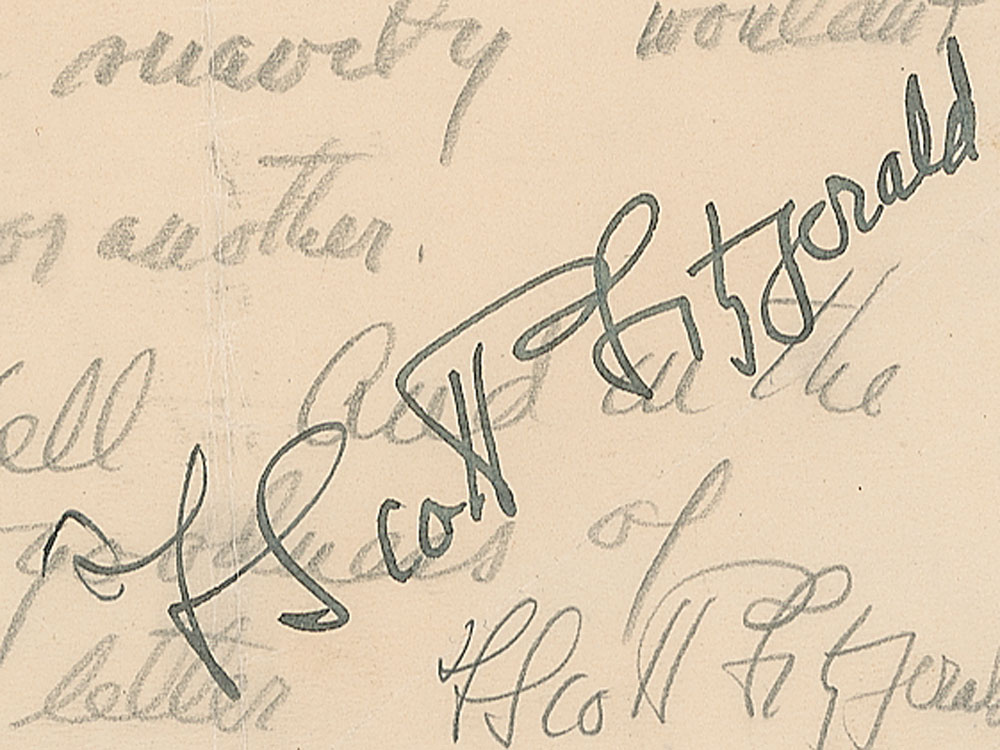 wouldn't
or another.
ell And in the
of
letter
F Scott Fitzgerald
F Scott Fitzgeral